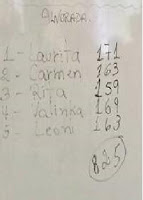 ALVORADA.
1 - Laurita 171
2 - Carmen 163
3 - Rita 159
4 - Valinka 169
5 - Leoni 163
825